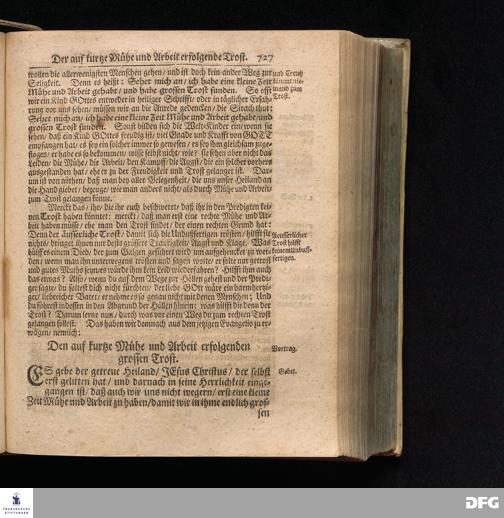 Der auf kurtze Mühe und Arbeit erfolgende Trost. 727
wollen die allerwenigsten Menschen gehen/ und ist doch kein ander Weg zur
Seligkeit. Denn es heißt: Sehet mich an/ ich habe eine kleine Zeit
Mühe und Arbeit gehabt/ und habe grossen Trost funden. So offt
wir ein Kind GOttes entweder in heiliger Schrifft/ oder in täglicher Erfah-
rung vor uns sehen/ müssen wir an die Anrede gedencken/ die Sirach thut:
Sehet mich an/ ich habe eine kleine Zeit Mühe und Arbeit gehabt/ und
grossen Trost funden. Sonst bilden sich die Welt-Kinder ein/ wenn sie
sehen/ daß ein Kind GOttes freudig ist/ viel Gnade und Krafft von GOTT
empfangen hat/ es sey ein solcher immer so gewesen/ es sey ihm gleichsam zuge-
flogen/ er habe es so bekommen/ wisse selbst nicht/ wie? sie sehen aber nicht das
Leiden/ die Mühe/ die Arbeit/ den Kampff/ die Angst/ die ein solcher vorhero
ausgestanden hat/ ehe er zu der Freudigkeit und Trost gelanget ist. Dar-
um ist von nöthen/ daß man bey aller Gelegenheit/ die uns unser Heiland an
die Hand giebet/ bezeuge/ wie man anders nicht/ als durch Mühe und Arbeit/
zum Trost gelangen könne.
und Creutz
niemand zum
Trost.
Mercket das/ ihr/ die ihr euch beschweret/ daß ihr in den Predigten kei-
nen Trost haben könntet: merckt/ daß man erst eine rechte Mühe und Ar-
beit haben müsse/ ehe man den Trost findet/ der einen rechten Grund hat:
Denn der äusserliche Trost/ damit sich die Unbußfertigen trösten/ hilfft sie
nichts/ bringet ihnen nur desto grössere Traurigkeit/ Angst und Klage. Was
hülft es einem Dieb/ der zum Galgen geführet wird um aufgehencket zu wer-
den/ wenn man ihn unterwegens trösten und sagen wolte/ er solte nur getrost
und gutes Muths seyn/ es würde ihm kein Leid wiederfahren? Hilfft ihm auch
das etwas? Also/ wenn du auf dem Wege zur Höllen gehest und der Predi-
ger sagte/ du soltest dich nicht fürchten/ der liebe GOtt wäre ein barmhertzi-
ger/ liebreicher Vater/ er nehme es so genau nicht mit denen Menschen; Und
du führest indessen in den Abgrund der Höllen hinein: was hülfft dir denn der
Trost? Darum lerne nun/ durch was vor einen Weg du zum rechten Trost
gelangen sollest. Das haben wir demnach aus dem jetzigen Evangelio zu er-
wägen/ nemlich:
Aeusserlicher
Trost hilfft
keinem Unbuß-
fertigen.
Den auf kurtze Mühe und Arbeit erfolgenden
grossen Trost.
Vortrag.
ES gebe der getreue Heiland/ JEsus Christus/ der selbst
erst gelitten hat/ und darnach in seine Herrlichkeit einge-
gangen ist/ daß auch wir uns nicht wegern/ erst eine kleine
Zeit Mühe und Arbeit zu haben/ damit wir in ihme endlich gros-
sen
Gebet.
FRANCKESCHE
STIFTUNGEN
DFG